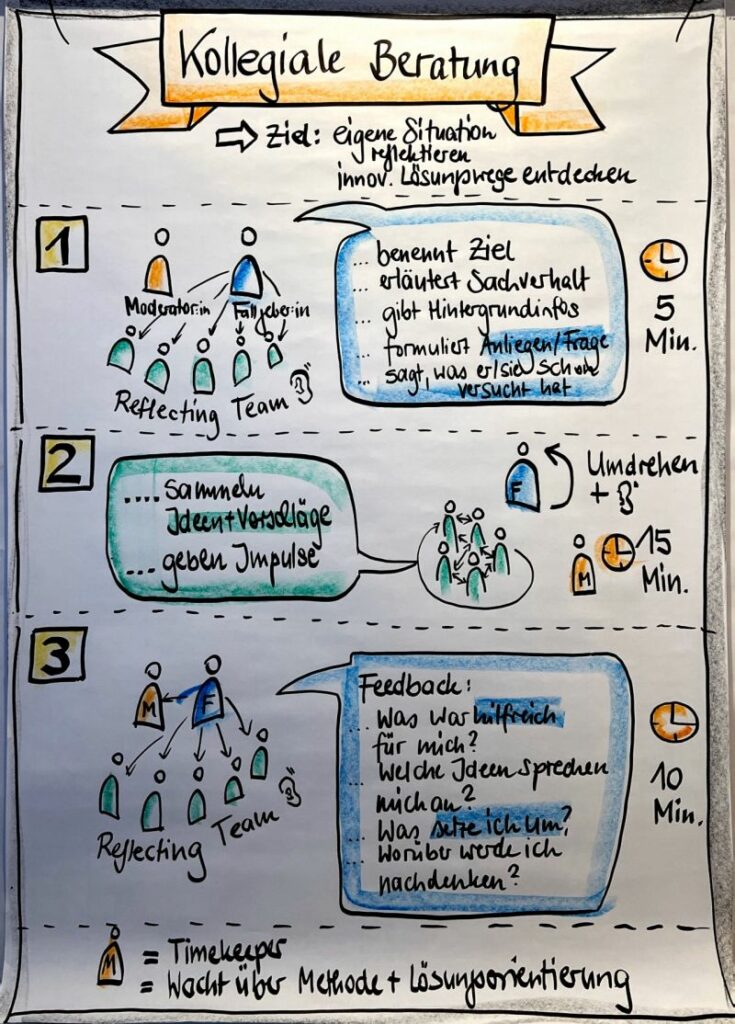 Kollegiale Beratung
Ziel: eigene Situation
reflektieren
innov. Lösungswege entdecken
1
Moderator:in
Fallgeber:in
Reflecting Team
... benennt Ziel
... erläutert Sachverhalt
... gibt Hintergrundinfos
... formuliert Anliegen/Frage
... sagt, was er/sie schon
versucht hat
5
Min.
2
.... sammeln
Ideen + Vorschläge
... geben Impulse
F
Umdrehen
+
M
15
Min.
3
M
F
Reflecting Team
Feedback:
... Was war hilfreich
für mich?
Welche Ideen sprechen
mich an?
... Was setze ich um?
... Worüber werde ich
nachdenken?
10
Min.
M
= Timekeeper
= Wacht über Methode + Lösungsorientierung